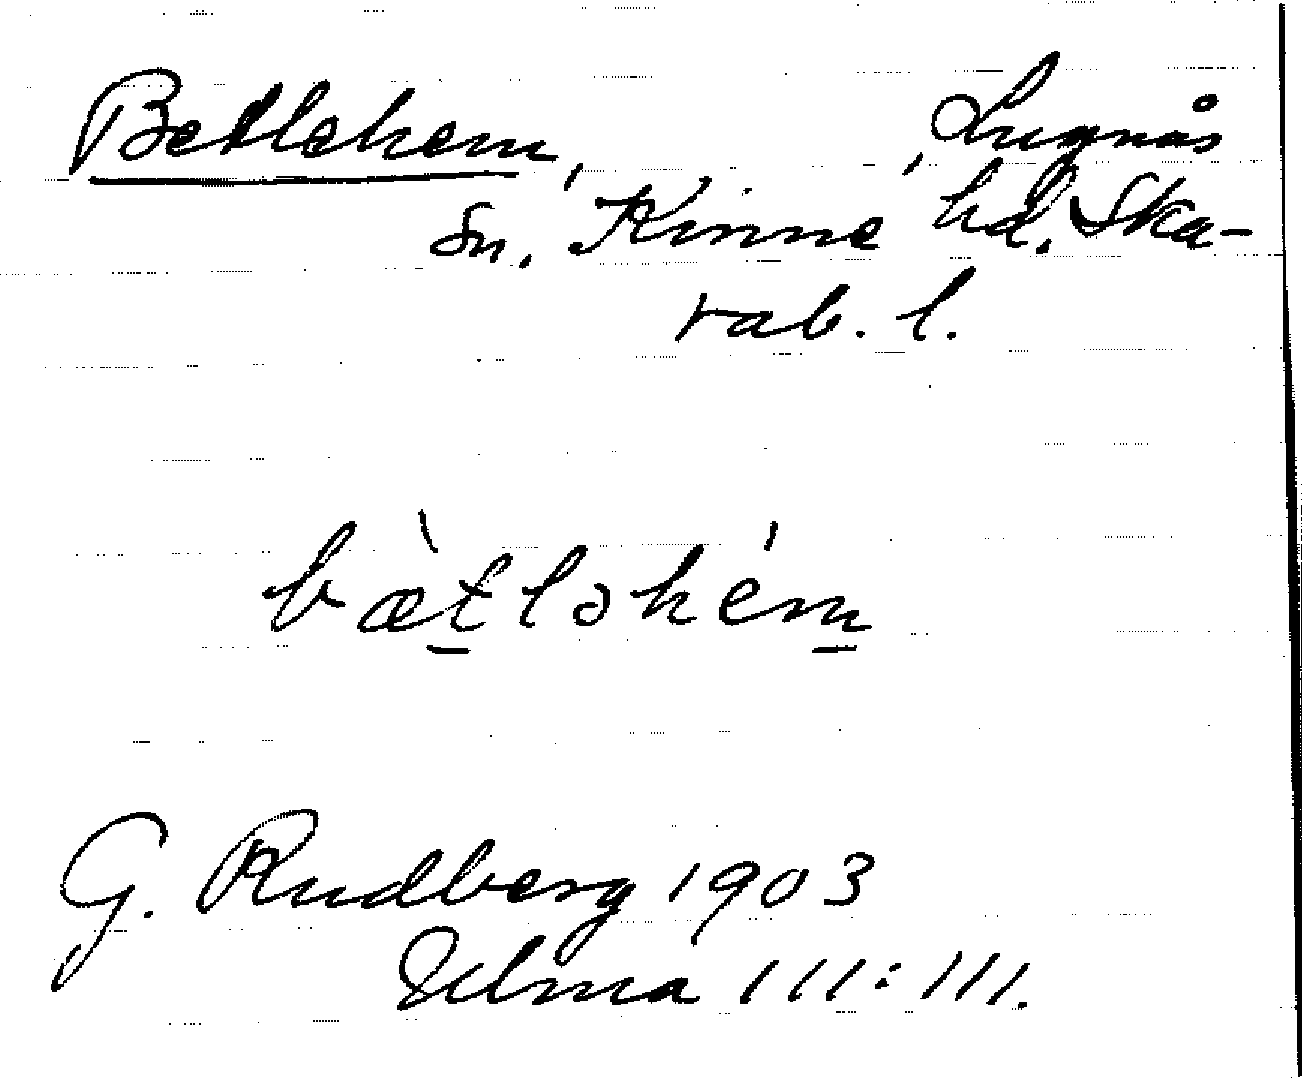 Betlehem, Lugnås
sn, Kinne hd. Ska-
rab. l.
bæ̀tləhém
G. Rudberg 1903
Ulma 111:111.